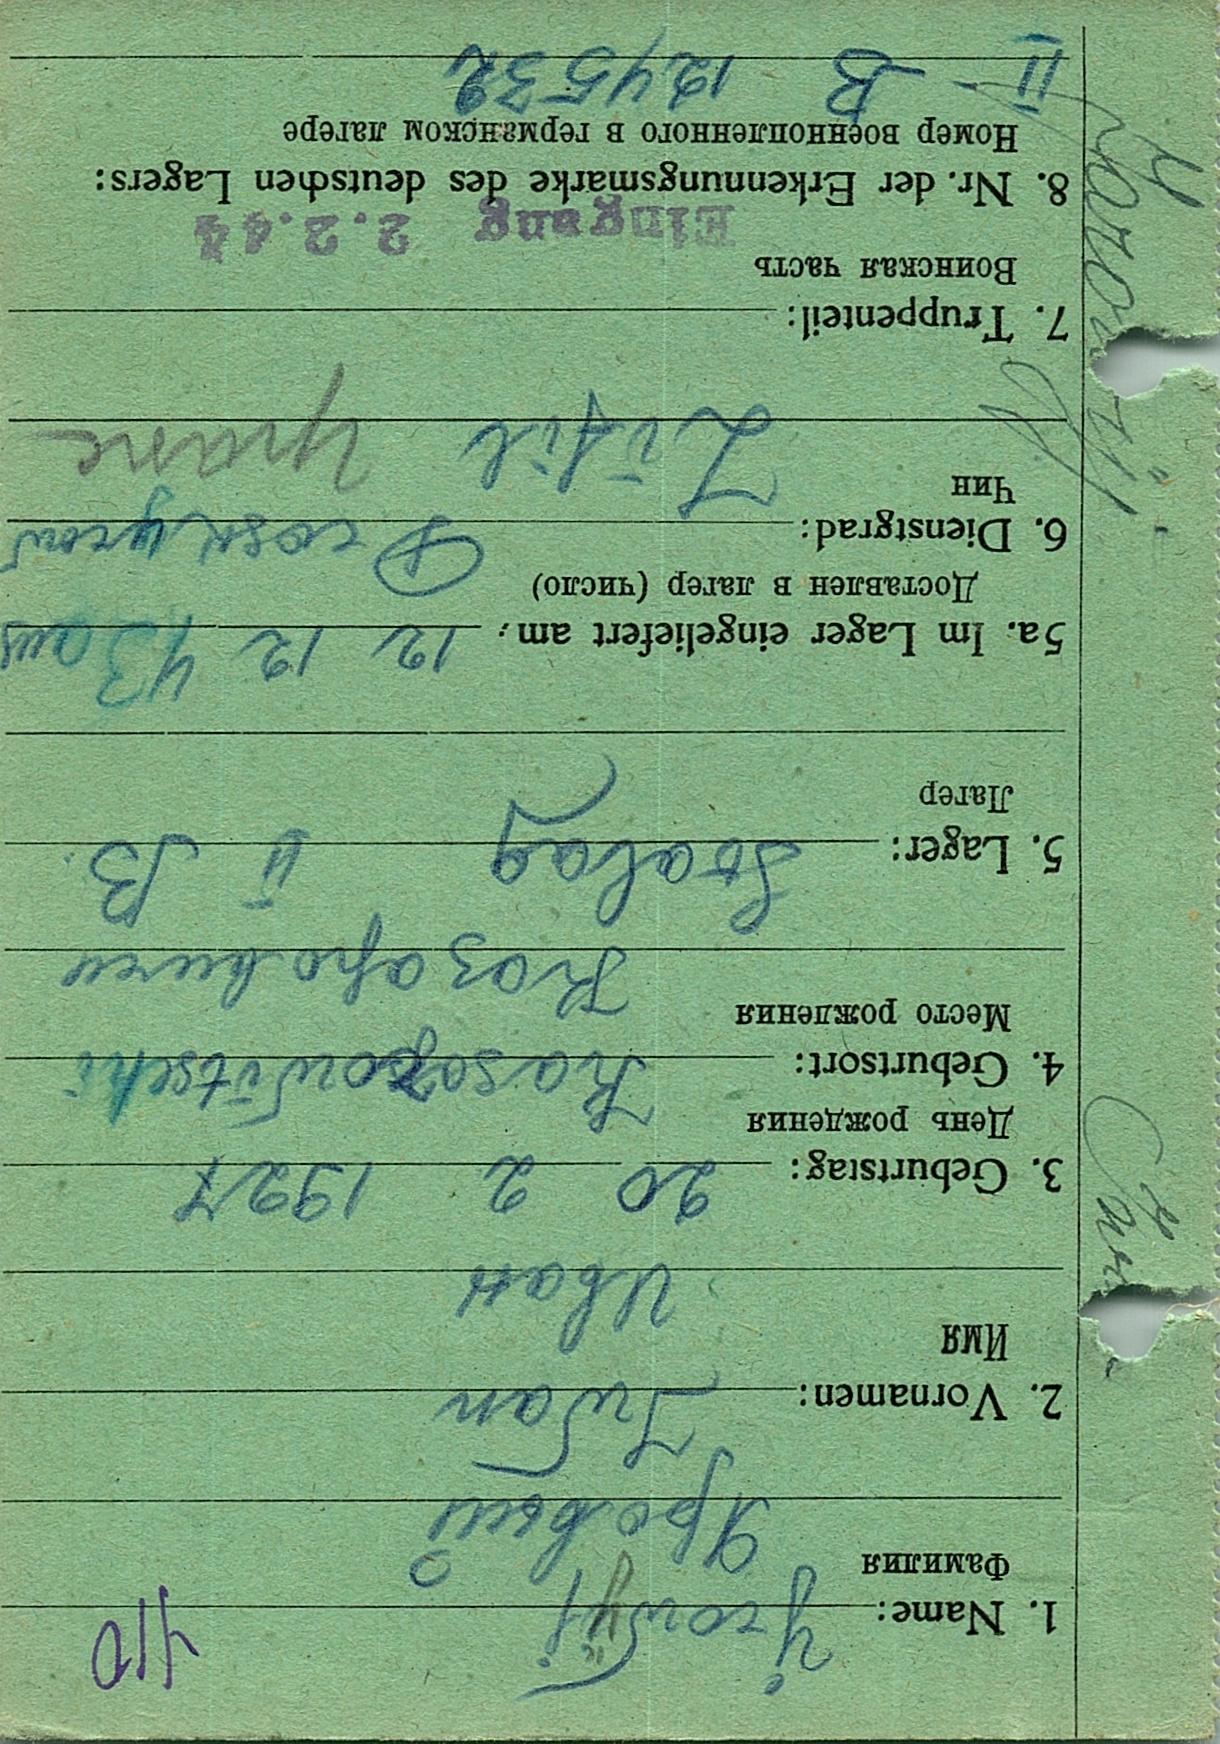 410
1. Name:
Фамилия
Яровый
2. Vornamen: Iwan
Имя
Иван
3. Geburtstag: 20 2 1927
День рождения
4. Geburtsort: Kasarowitschi
Место рождения
Казаровичи
5. Lager: Stalag II B
Лагер
5a. Im Lager eingeliefert am: 12 12 43 aus
Доставлен в лагер (число)
6. Dienstgrad:
Чин
Zivil
7. Truppenteil:
Воинская часть
Eingang 2.2.44
8. Nr. der Erkennungsmarke des deutschen Lagers:
Номер военнопленного в германском лагере
II B 124532